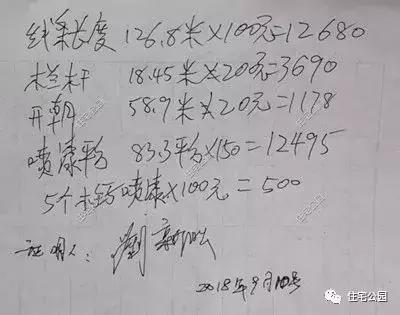 线条长度 126.8米×100元=12680
栏杆 18.45米×200元=3690
开朝 58.9米×20元=1178
喷漆平方 83.3平方×150=12495
5个 喷漆×100元=500
证明人:
2018年9月10号
住宅公园